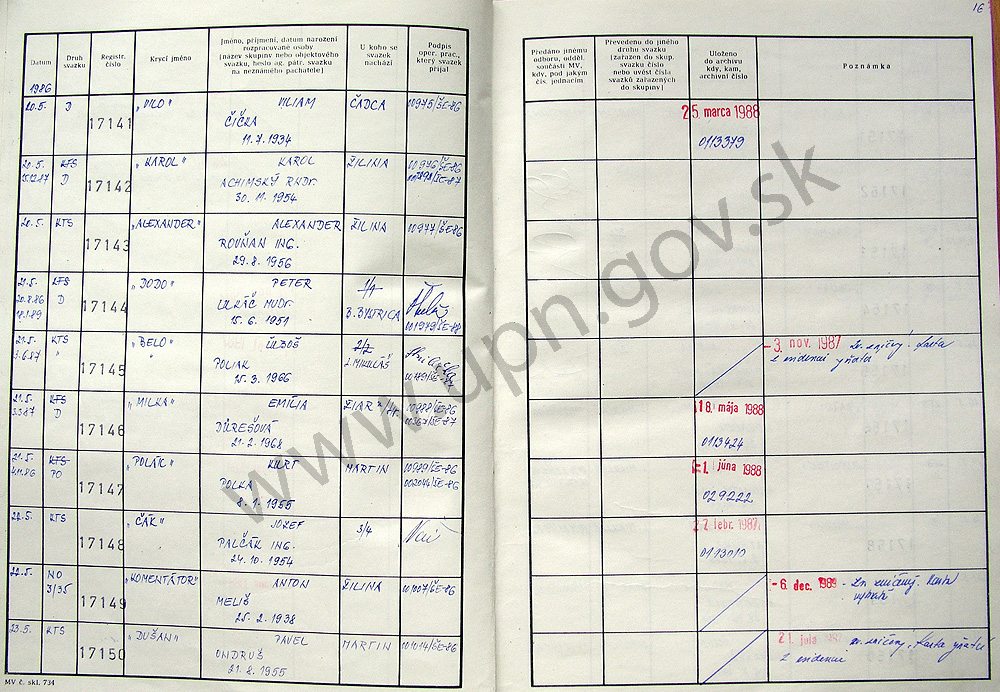 16
Datum
Druh svazku
Registr. číslo
Krycí jméno
Jméno, příjmení, datum narození rozpracované osoby (název skupiny nebo objektového svazku, heslo ag. pátr. svazku na neznámého pachatele)
U koho se svazek nachází
Podpis oper. prac., který svazek přijal
Předáno jinému odboru, odděl. součásti MV, kdy, pod jakým čís. jednacím
Převedeno do jiného druhu svazku (zařazen do skup. svazku číslo nebo uvést čísla svazků zařazených do skupiny)
Uloženo do archivu kdy, kam, archivní číslo
Poznámka
1986
20.5. D 17141 "VILO" VILIAM ČADCA 00975/ŠE-86 25 marca 1988
ČÍČKA
11.7.1934 0113379
20.5. KTS 17142 "KAROL" KAROL ŽILINA 00976/ŠE-86
D ACHIMSKÝ RNDr.
30.11.1954
20.5. KTS 17143 "ALEXANDER" ALEXANDER ŽILINA 00977/ŠE-86
ROVŇAN ING.
29.8.1956
21.5. KTS 17144 "DODO" PETER 1/4
20.8.86 D LUKÁČ MUDr. B. BYSTRICA
18.1.89 15.6.1951 001979/ŠE-88
21.5. KTS 17145 "BELO" ĽUBOŠ 2/2 - 3. nov. 1987 Zv. zničený. Karta
3.6.87 " POLIAK L. MIKULÁŠ z evidencie vyňatá
15.3.1966
21.5. KTS 17146 "MILKA" EMÍLIA ŽIAR 00988/ŠE-86 18. mája 1988
3.3.87 D ĎUREŠOVÁ
21.2.1968 0113424
21.5. KTS 17147 "POLÁK" KURT MARTIN 00989/ŠE-86 1. júna 1988
4.11.86 PO POLKA 002044/ŠE-86
8.1.1955 029222
22.5. KTS 17148 "ČÁK" JOZEF 3/4 27 febr. 1987
PALČÁK ING.
24.10.1954 0113010
22.5. NO 17149 "KOMENTÁTOR" ANTON ŽILINA 001007/ŠE-86 - 6. dec. 1989 - Zv. zničený. Karta
3/35 MELIŠ vybratá
25.2.1938
23.5. KTS 17150 "DUŠAN" PAVEL MARTIN 001014/ŠE-86 21. júla zv. zničený. Karta vyňatá
ONDRUŠ z evidencie
21.8.1955
MV č. skl. 734
www.upn.gov.sk